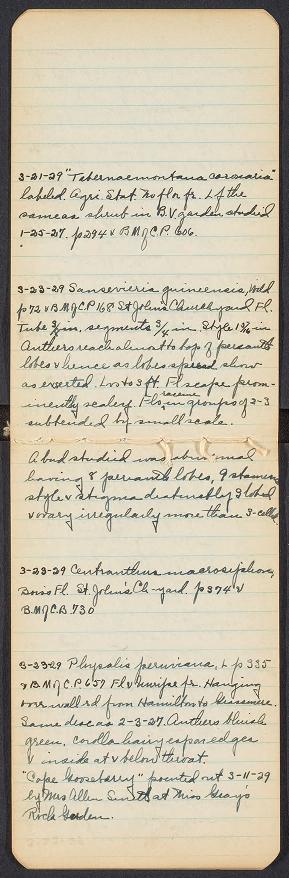 3-21-29 "Tabernaemontana coronaria"
labeled. Agri. Stat. No flor fr. L f the
same as shrub in B.V. garden studied
1-25-27. p294 v B M J C.P. 606.
3-23-29 Sansevieria guineensis, Willd
p72 v B M J C.P. 168 St John's Church yard Fl.
Tube 3/4 in. segments 3/4 in. Style 1 9/16 in
Anthers reach almost to top of perianth
lobes v hence as lobes spread show
as exserted. Lvs to 3 ft. Fl scape prom-
inently scaley. Fls, in groups of 2-3
raceme
subtended by small scale.
A bud studied was abnormal
having 8 perianth lobes, 9 stamens
style v stigma distinctly 3 lobed
v ovary irregularly more than 3-celled
3-23-29 Centranthus macrosiphon,
Boiss Fl. St. John's Ch-yard. p374 v
B.M.J C.B 730
3-23-29 Physalis peruviana, L p 335
v B M J C.P. 657 Fl v unripe fr. Hanging
over wall rd from Hamilton to Grassmere.
Same disc as 2-3-27. Anthers bluish
green, corolla hairy especially on edges
v inside at v below throat.
"Cape Gooseberry" pointed out 3-11-29
by Mrs Allen Smith at Miss Gray's
Rock Garden.